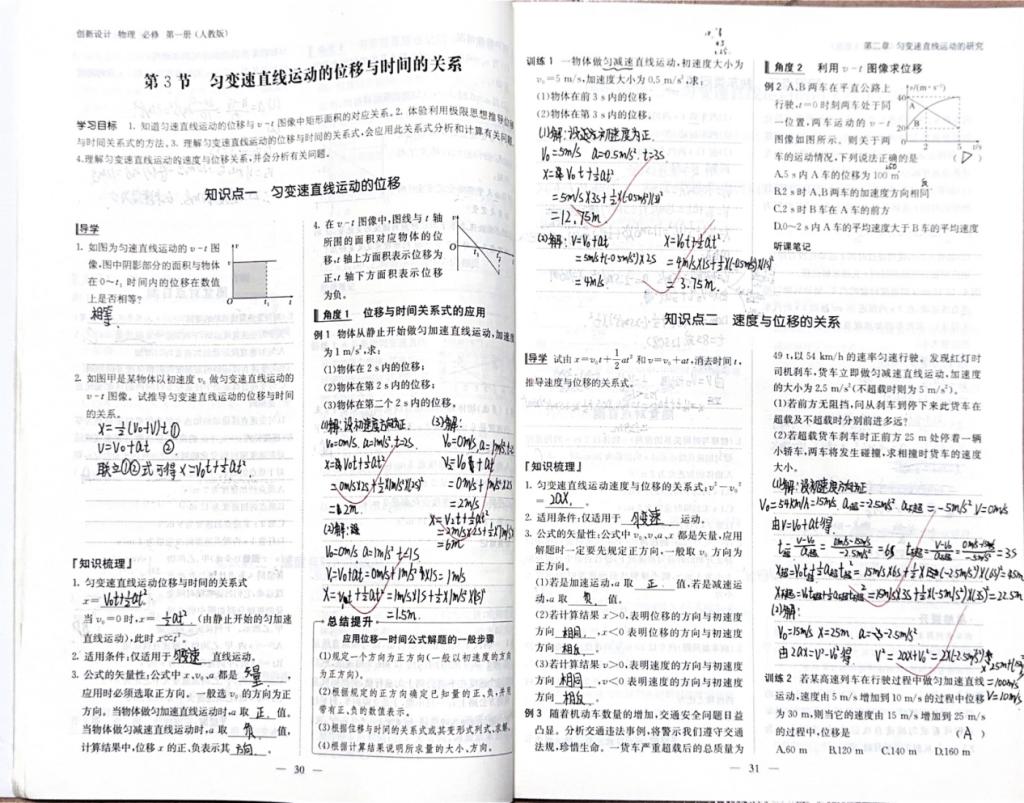 创新设计 物理 必修 第一册(人教版)
第3节 匀变速直线运动的位移与时间的关系
学习目标 1. 知道匀变速直线运动的位移与v-t图像中矩形面积的对应关系。2. 体验利用极限思想推导位移
与时间关系式的方法。3. 理解匀变速直线运动的位移与时间的关系,会应用此关系式分析和计算有关问题。
4.理解匀变速直线运动的速度与位移关系,并会分析有关问题。
知识点一 匀变速直线运动的位移
导学
1. 如图为匀速直线运动的v-t图
像,图中阴影部分的面积与物体
在0~t₁时间内的位移在数值
上是否相等?
相等.
2. 如图甲是某物体以初速度v₀做匀变速直线运动的
v-t图像。试推导匀变速直线运动的位移与时间
的关系。
x=½(v₀+v)t ①
v=v₀+at ②
联立①②式可得x=v₀t+½at².
『知识梳理』
1. 匀变速直线运动位移与时间的关系式
x= v₀t+½at² 。
当v₀=0时,x= ½at² (由静止开始的匀加速
直线运动),此时x∝t²。
2. 适用条件:仅适用于 匀变速 直线运动。
3. 公式的矢量性:公式中x、v₀、a都是 矢量 ,
应用时必须选取正方向。一般选v₀的方向为正
方向。当物体做匀加速直线运动时,a取 正 值。
当物体做匀减速直线运动时,a取 负 值,
计算结果中,位移x的正、负表示其 方向 。
4. 在v-t图像中,图线与t轴
所围的面积对应物体的位
移,t轴上方面积表示位移为
正,t轴下方面积表示位移
为负。
角度1 位移与时间关系式的应用
例1 物体从静止开始做匀加速直线运动,加速度
为1 m/s²,求:
(1)物体在2 s内的位移;
(2)物体在第2 s内的位移;
(3)物体在第二个2 s内的位移。
(1)解:设初速度方向为正.
v₀=0m/s, a=1m/s², t=2s.
x=v₀t+½at²
=0m/s×2s+½×1m/s²×(2s)²
=2m.
(2)解:
v₀=0m/s a=1m/s² t=1s
v₁=v₀+at=0m/s+1m/s²×1s=1m/s
x=v₁t+½at²=1m/s×1s+½×1m/s²×(1s)²
=1.5m.
(3)解:
v₀=0m/s, a=1m/s², t=2s
v₂=v₀+at
=0m/s+1m/s²×2s
=2m/s
x=v₂t+½at²
=2m/s×2s+½×1m/s²
=6m
总结提升
应用位移一时间公式解题的一般步骤
(1)规定一个方向为正方向(一般以初速度的方向
为正方向)。
(2)根据规定的正方向确定已知量的正、负,并用
带有正、负的数值表示。
(3)根据位移与时间的关系式或其变形式列式、求解。
(4)根据计算结果说明所求量的大小、方向。
— 30 —
第二章 匀变速直线运动的研究
训练1 一物体做匀减速直线运动,初速度大小为
v₀=5 m/s,加速度大小为0.5 m/s²,求:
(1)物体在前3 s内的位移;
(2)物体在第3 s内的位移。
(1)解:设初速度为正.
v₀=5m/s a=0.5m/s². t=3s
x=v₀t+½at²
=5m/s×3s+½×(-0.5m/s²)×(3s)²
=12.75m
(2)解: v=v₀+at
=5m/s+(-0.5m/s²)×2s
=4m/s.
x=v₀t+½at²
=4m/s×1s+½×(-0.5m/s²)×(1s)²
=3.75m.
角度2 利用v-t图像求位移
例2 A、B两车在平直公路上
行驶,t=0时刻两车处于同
一位置,两车运动的v-t
图像如图所示。则关于两
车的运动情况,下列说法正确的是 ( D )
A.5 s内A车的位移为100 m
B.2 s时A、B两车的加速度方向相同
C.2 s时B车在A车的前方
D.0~2 s内A车的平均速度大于B车的平均速度
听课笔记
知识点二 速度与位移的关系
导学 试由x=v₀t+½at²和v=v₀+at,消去时间t,
推导速度与位移的关系式。
『知识梳理』
1. 匀变速直线运动速度与位移的关系式:v²-v₀²
= 2ax 。
2. 适用条件:仅适用于 匀变速 运动。
3. 公式的矢量性:公式中v₀、v、a、x都是矢量,应用
解题时一定要先规定正方向,一般取v₀方向为
正方向。
(1)若是加速运动,a取 正 值,若是减速运
动,a取 负 值。
(2)若计算结果x>0,表明位移的方向与初速度
方向 相同 ,x<0表明位移的方向与初速度
方向 相反 。
(3)若计算结果v>0,表明速度的方向与初速度
方向 相同 ,v<0表明速度的方向与初速度
方向 相反 。
例3 随着机动车数量的增加,交通安全问题日益
凸显。分析交通违法事例,将警示我们遵守交通
法规,珍惜生命。一货车严重超载后的总质量为
49 t,以54 km/h的速率匀速行驶。发现红灯时
司机刹车,货车立即做匀减速直线运动,加速度
的大小为2.5 m/s²(不超载时则为5 m/s²)。
(1)若前方无阻挡,问从刹车到停下来此货车在
超载及不超载时分别前进多远?
(2)若超载货车刹车时正前方25 m处停着一辆
小轿车,两车将发生碰撞,求相撞时货车的速度
大小。
(1)解:设初速度方向为正
由v=v₀+at得.
(2)解:
v₀=15m/s x=25m. a=-2.5m/s²
由2ax=v²-v₀²得
训练2 若某高速列车在行驶过程中做匀加速直线
运动,速度由5 m/s增加到10 m/s的过程中位移
为30 m,则当它的速度由15 m/s增加到25 m/s
的过程中,位移是 ( A )
A.60 m B.120 m C.140 m D.160 m
— 31 —